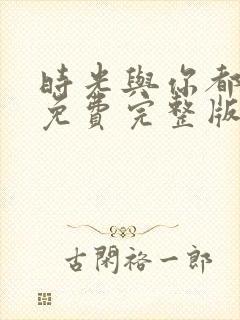 時光與你都
免費完整版
古閑裕一郎